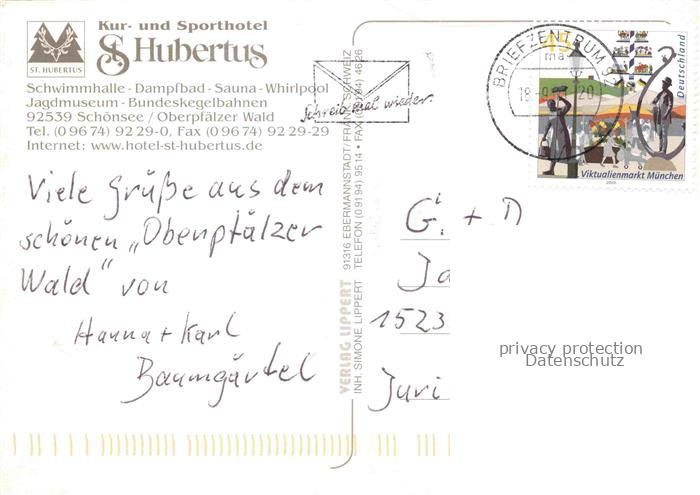 Kur- und Sporthotel
St. Hubertus
ST. HUBERTUS
Schwimmhalle - Dampfbad - Sauna - Whirlpool
Jagdmuseum - Bundeskegelbahnen
92539 Schönsee / Oberpfälzer Wald
Tel. (0 96 74) 92 29-0, Fax (0 96 74) 92 29-29
Internet: www.hotel-st-hubertus.de
Viele Grüße aus dem
schönen „Oberpfälzer
Wald" von
Hanna + Karl
Baumgärtel
VERLAG LIPPERT
INH. SIMONE LIPPERT
91316 EBERMANNSTADT/FRÄNK. SCHWEIZ
TELEFON (0 91 94) 95 14
Schreib mal wieder.
BRIEFZENTRUM
20
Deutschland
Viktualienmarkt München
G. + D
Ja
1523
Juri
privacy protection
Datenschutz